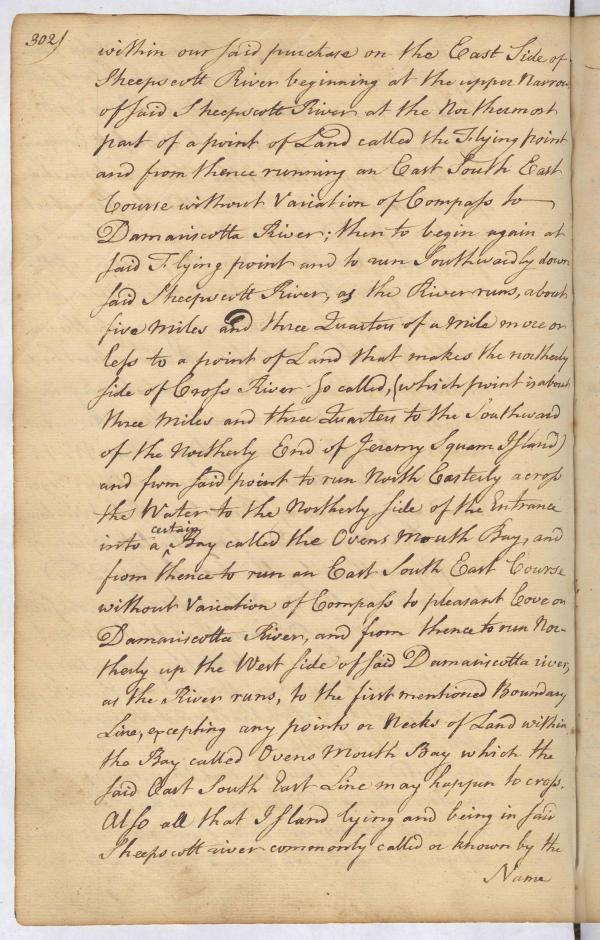 302)
within our said purchase on the East Side of
Sheepscott River beginning at the upper Narrow
of said Sheepscott River at the Northermost
part of a point of Land called the Flying point
and from thence running an East South East
Course without Variation of Compass to
Damariscotta River; then to begin again at
said Flying point and to run Southwardly down
said Sheepscott River, as the River runs, about
five Miles and three Quarters of a Mile more or
less to a point of Land that makes the northerly
side of Cross River so called, (which point is about
three Miles and three Quarters to the Southward
of the Northerly End of Jeremy Squam Island)
and from said point to run North Easterly across
the Water to the Northerly side of the Entrance
into a certain Bay called the Ovens Mouth Bay, and
from thence to run an East South East Course
without Variation of Compass to pleasant Cove on
Damariscotta River, and from thence to run Nor-
therly up the West side of said Damariscotta river,
as the River runs, to the first mentioned Boundary
Line, excepting any points or Necks of Land within
the Bay called Ovens Mouth Bay which the
said East South East Line may happen to cross.
Also all that Island lying and being in said
Sheepscott river commonly called or known by the
Name